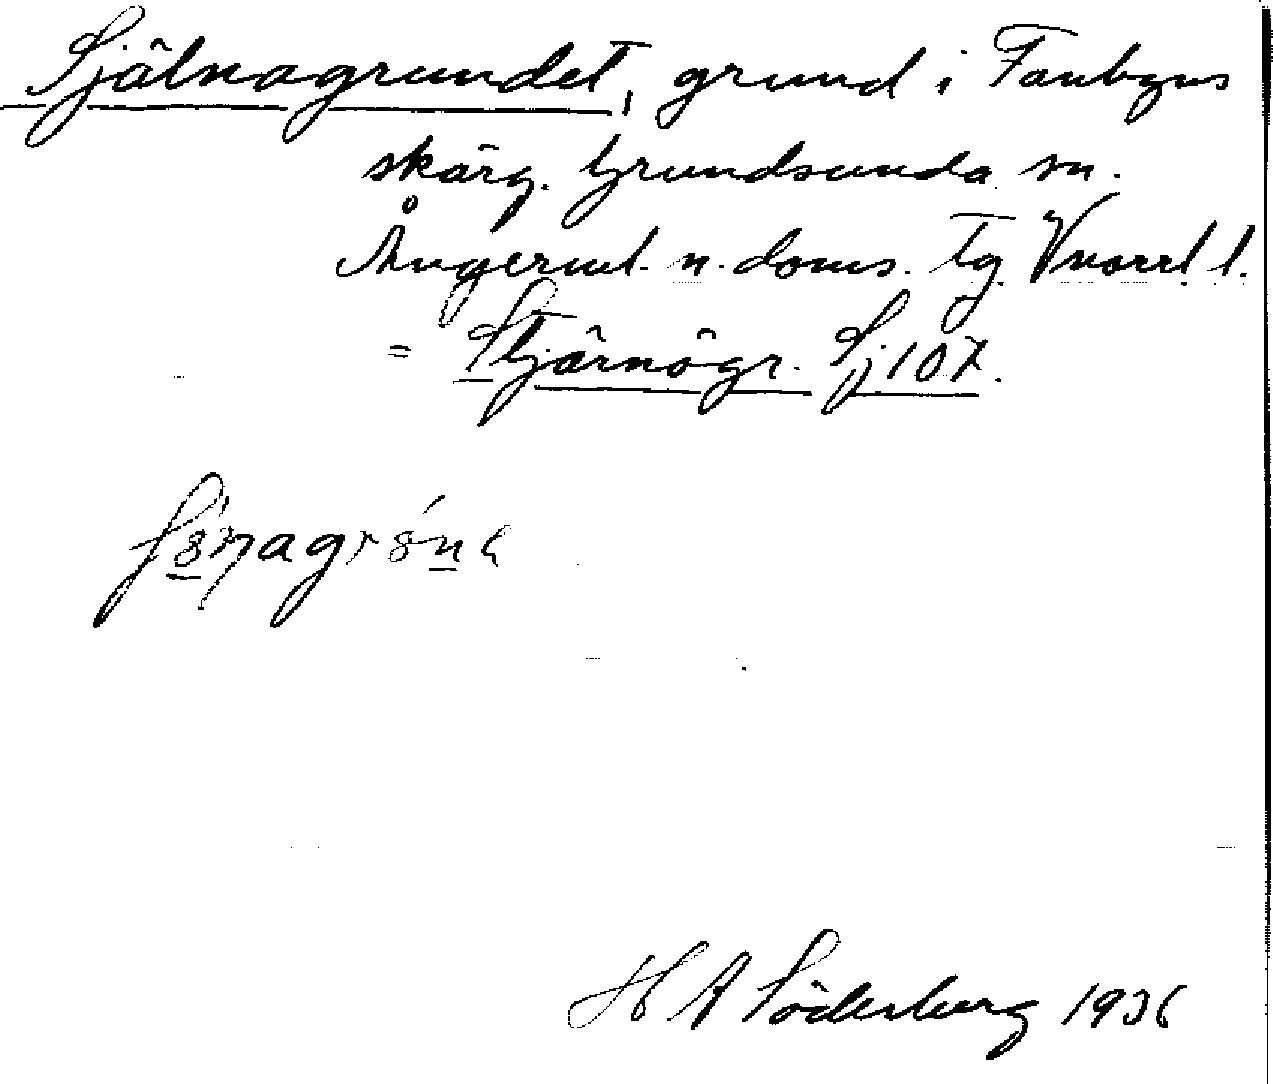 Själnagrundet, grund i Fanbyns
skärg. Grundsunda sn.
Ångerml. n. doms. tg. Vnorrl l.
= Stjärnögr. Sj 107.
H A Söderberg 1936